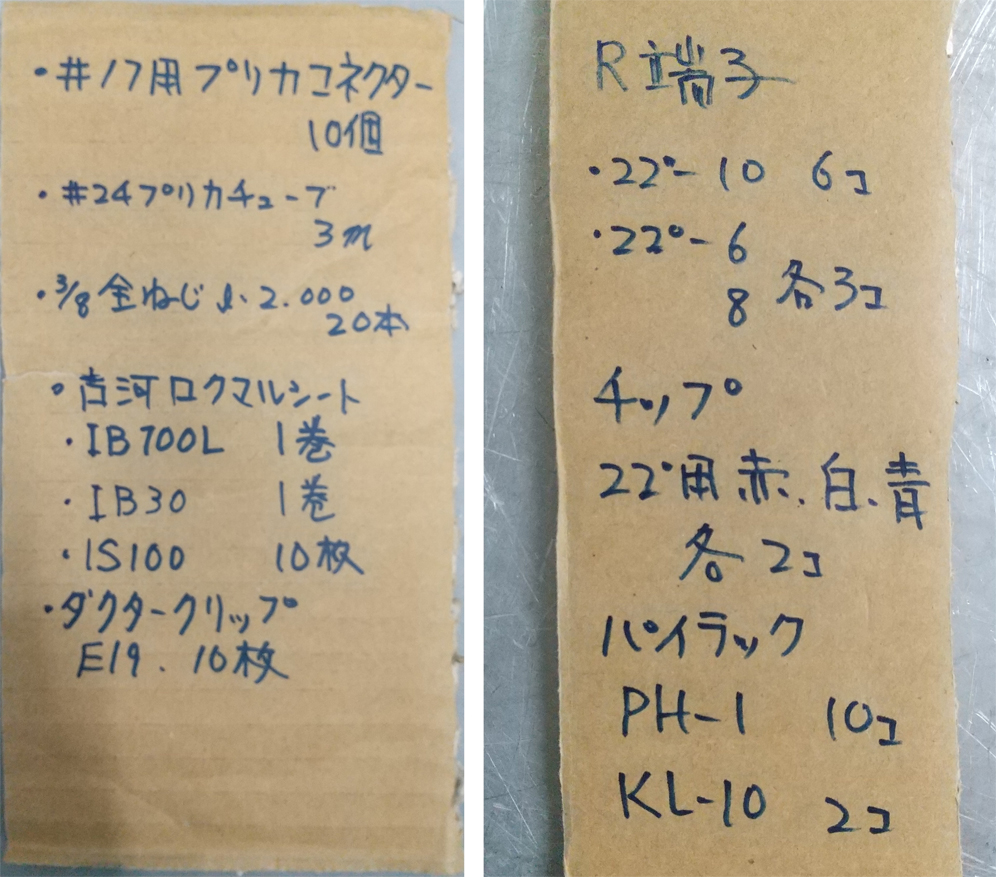 ・#17用プリカコネクター
10個
・#24プリカチューブ
3m
・3/8全ねじ ℓ.2.000
20本
・古河ロクマルシート
・IB700L 1巻
・IB30 1巻
・IS100 10枚
・ダクタークリップ
E19.10枚
R端子
・22°-10 6コ
・22°-6
8 各3コ
チップ
22°用赤.白.青
各2コ
パイラック
PH-1 10コ
KL-10 2コ